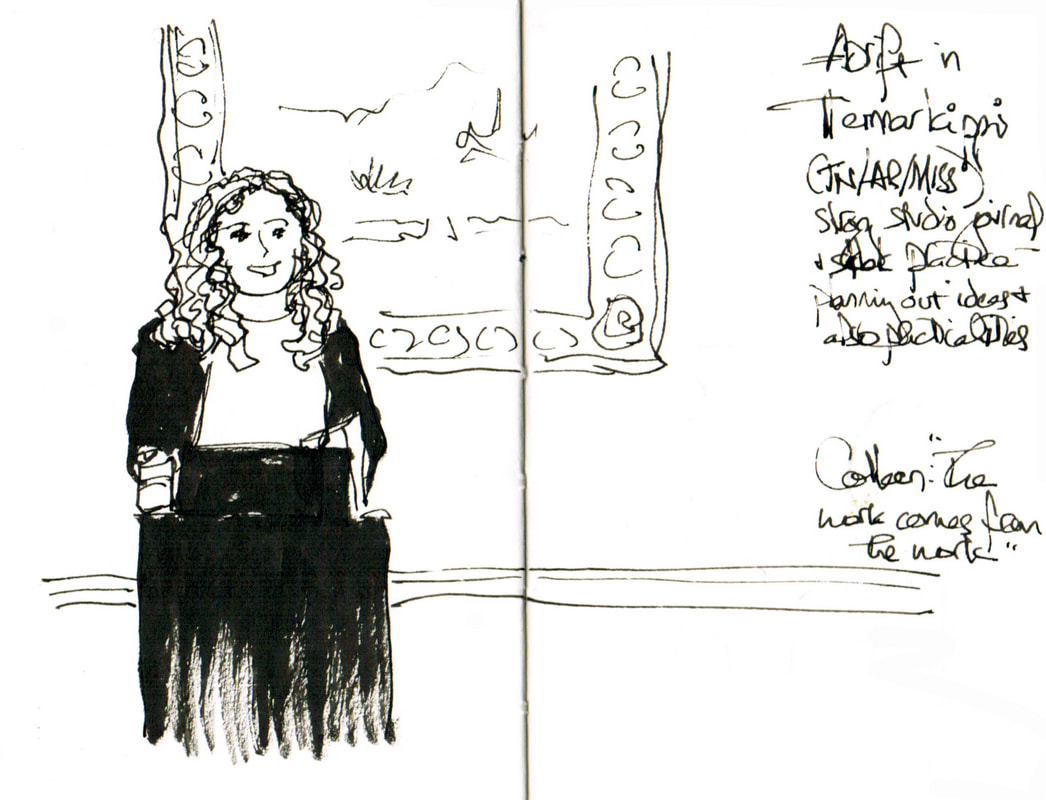 Adrift in
Tennarkippi
(TN/AR/MISS)
strong studio journal
+ skbk practice
panning out ideas +
also practicalities
Colleen: "The
work comes from
the work"